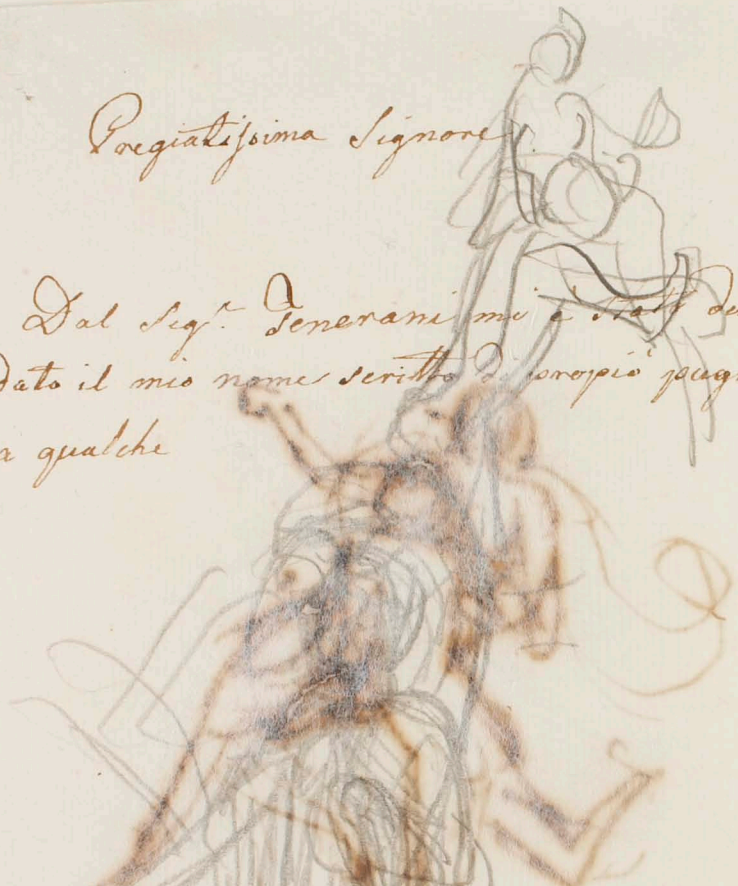 Pregiatissima Signore
Dal Sig.r Tenerani mi è stato
dato il mio nome scritto di propio
a qualche